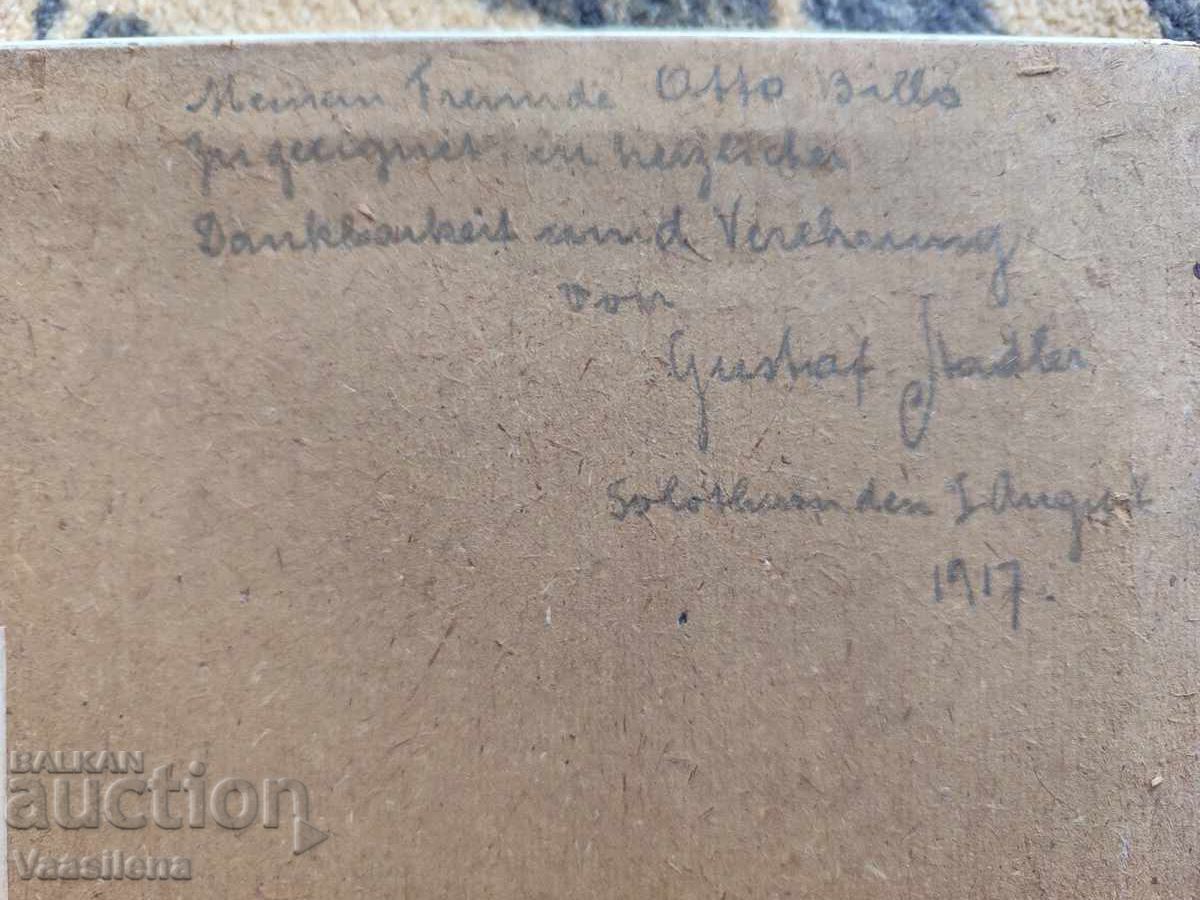 Meinem Freunde Otto Billo
zugeeignet in herzlicher
Dankbarkeit und Verehrung
von
Gustaf Stadler
Solothurn den 3 August
1917.
BALKAN
auction
Vaasilena